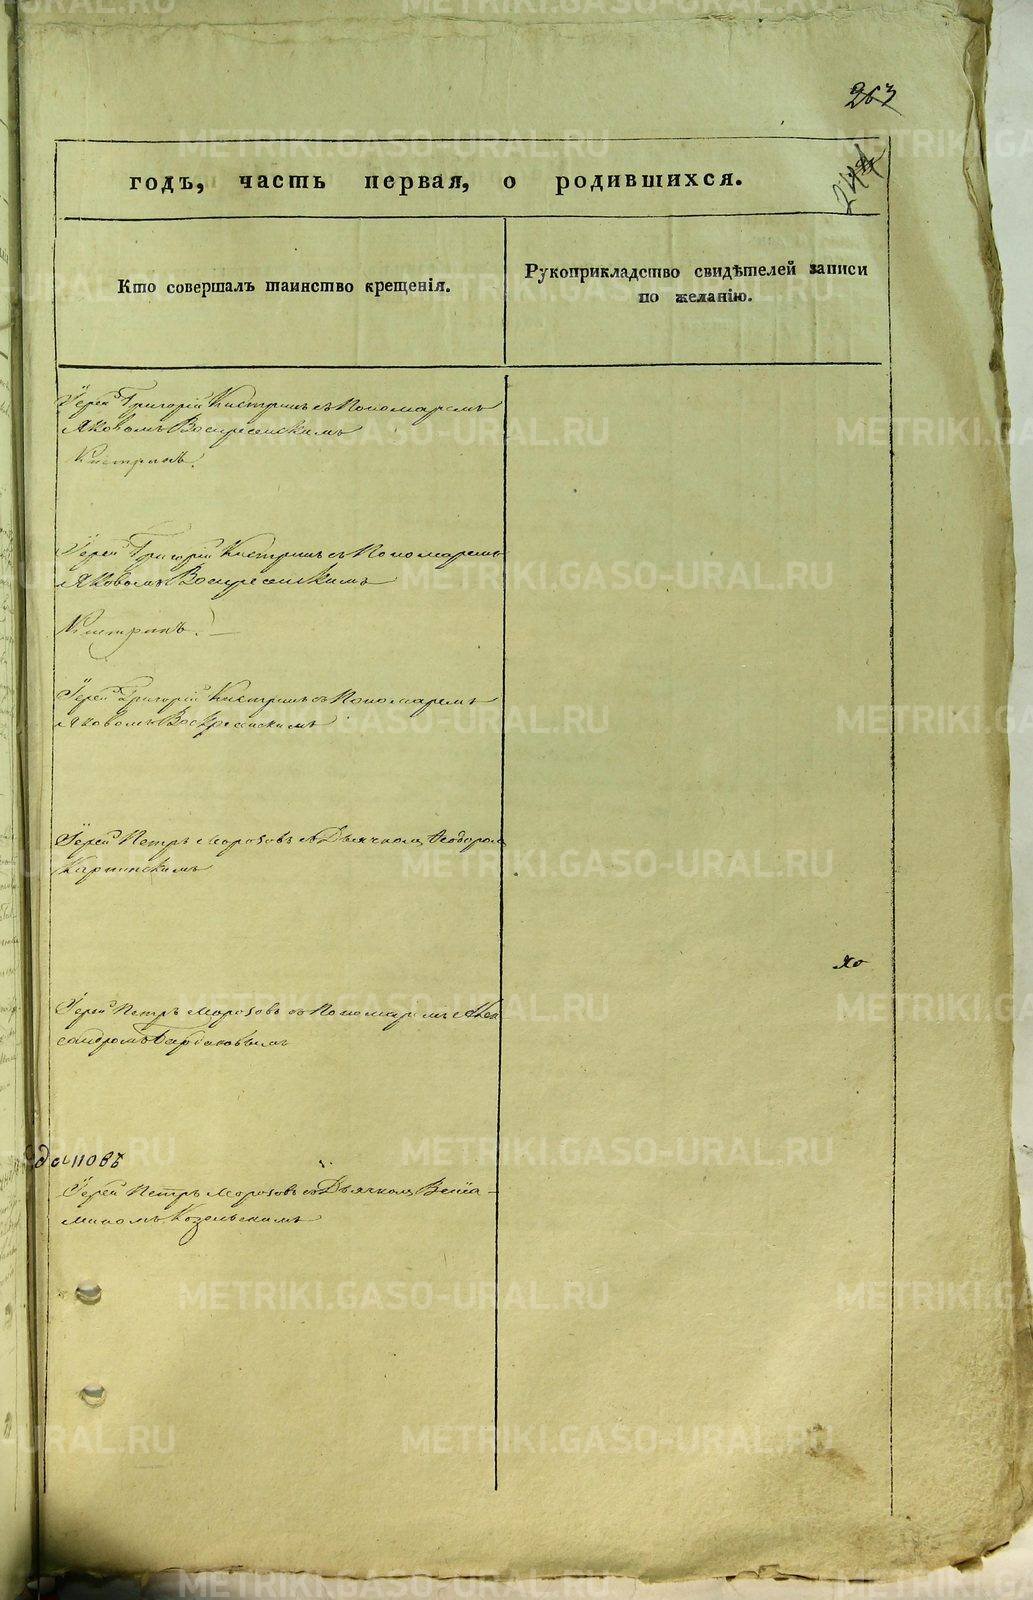 263
244
годъ, часть первая, о родившихся.
Кто совершалъ таинство крещенія.
Рукоприкладство свидѣтелей записи
по желанію.
Іерей Григорій Кистринъ съ Пономаремъ
Яковомъ Воскресенскимъ
Кистринъ.
Іерей Григорій Кистринъ съ Пономаремъ
Яковомъ Воскресенскимъ
Кистринъ.
Іерей Григорій Кистринъ съ Пономаремъ
Яковомъ Воскресенскимъ
Іерей Петръ Морозовъ съ Дьячкомъ Ѳеодоромъ
Карпинскимъ
Іерей Петръ Морозовъ съ Пономаремъ Алек
сандромъ
Іерей Петръ Морозовъ съ Дьячкомъ Веніа-
миномъ Козельскимъ
METRIKI.GASO-URAL.RU